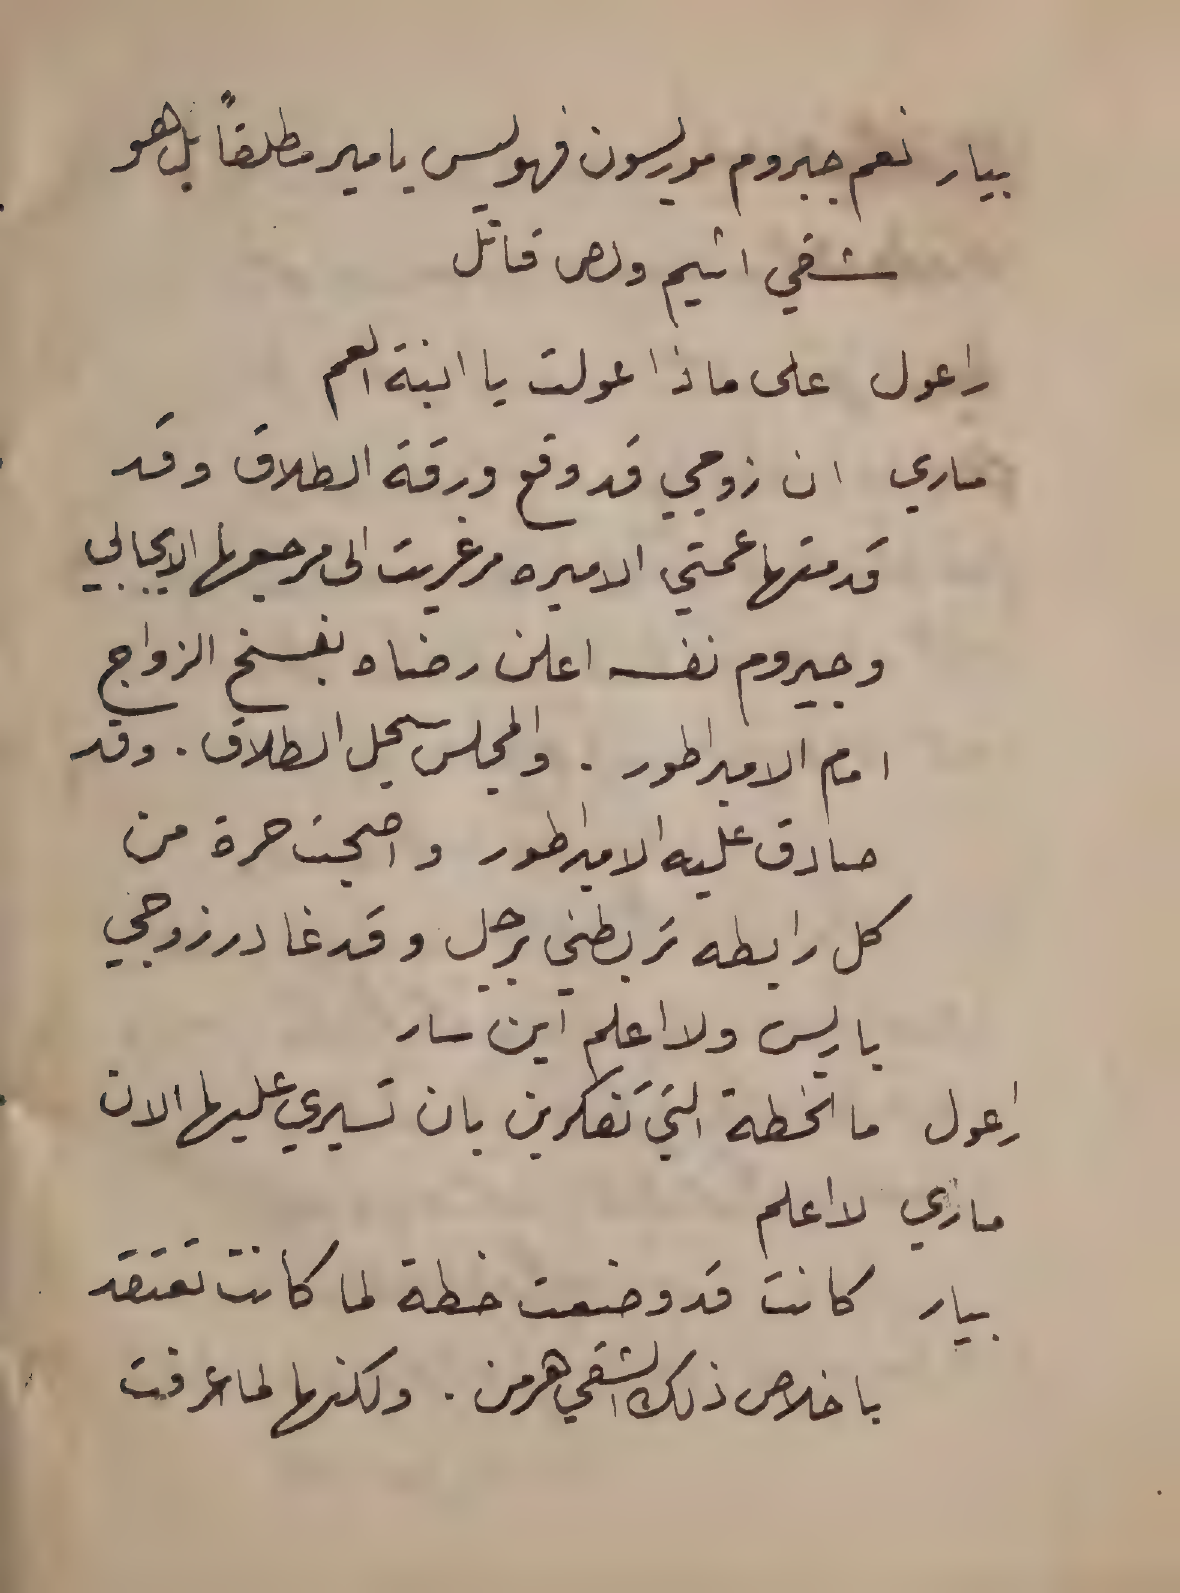 بيار نعم جيروم موريسون فهو ليس بامير مطلقاً بل هو
شقي اثيم ولص قاتل
راعول على ماذا عولت يا ابنة العم
ماري ان زوجي قد وقع ورقة الطلاق وقد
قدمتها عمتي الاميره مرغريت الى مرجعها الايجابي
وجيروم نفسه اعلن رضاه بفسخ الزواج
امام الامبراطور . والمجلس سجل الطلاق . وقد
صادق عليه الامبراطور واصبحت حرة من
كل رابطه تربطني برجل وقد غادر زوجي
باريس ولا اعلم اين سار
راعول ما الخطة التي تفكرين بان تسيري عليها الان
ماري لا اعلم
بيار كانت قد وضعت خطة لما كانت تعتقد
باخلاص ذلك الشقي هرمن . ولكنها لما عرفت